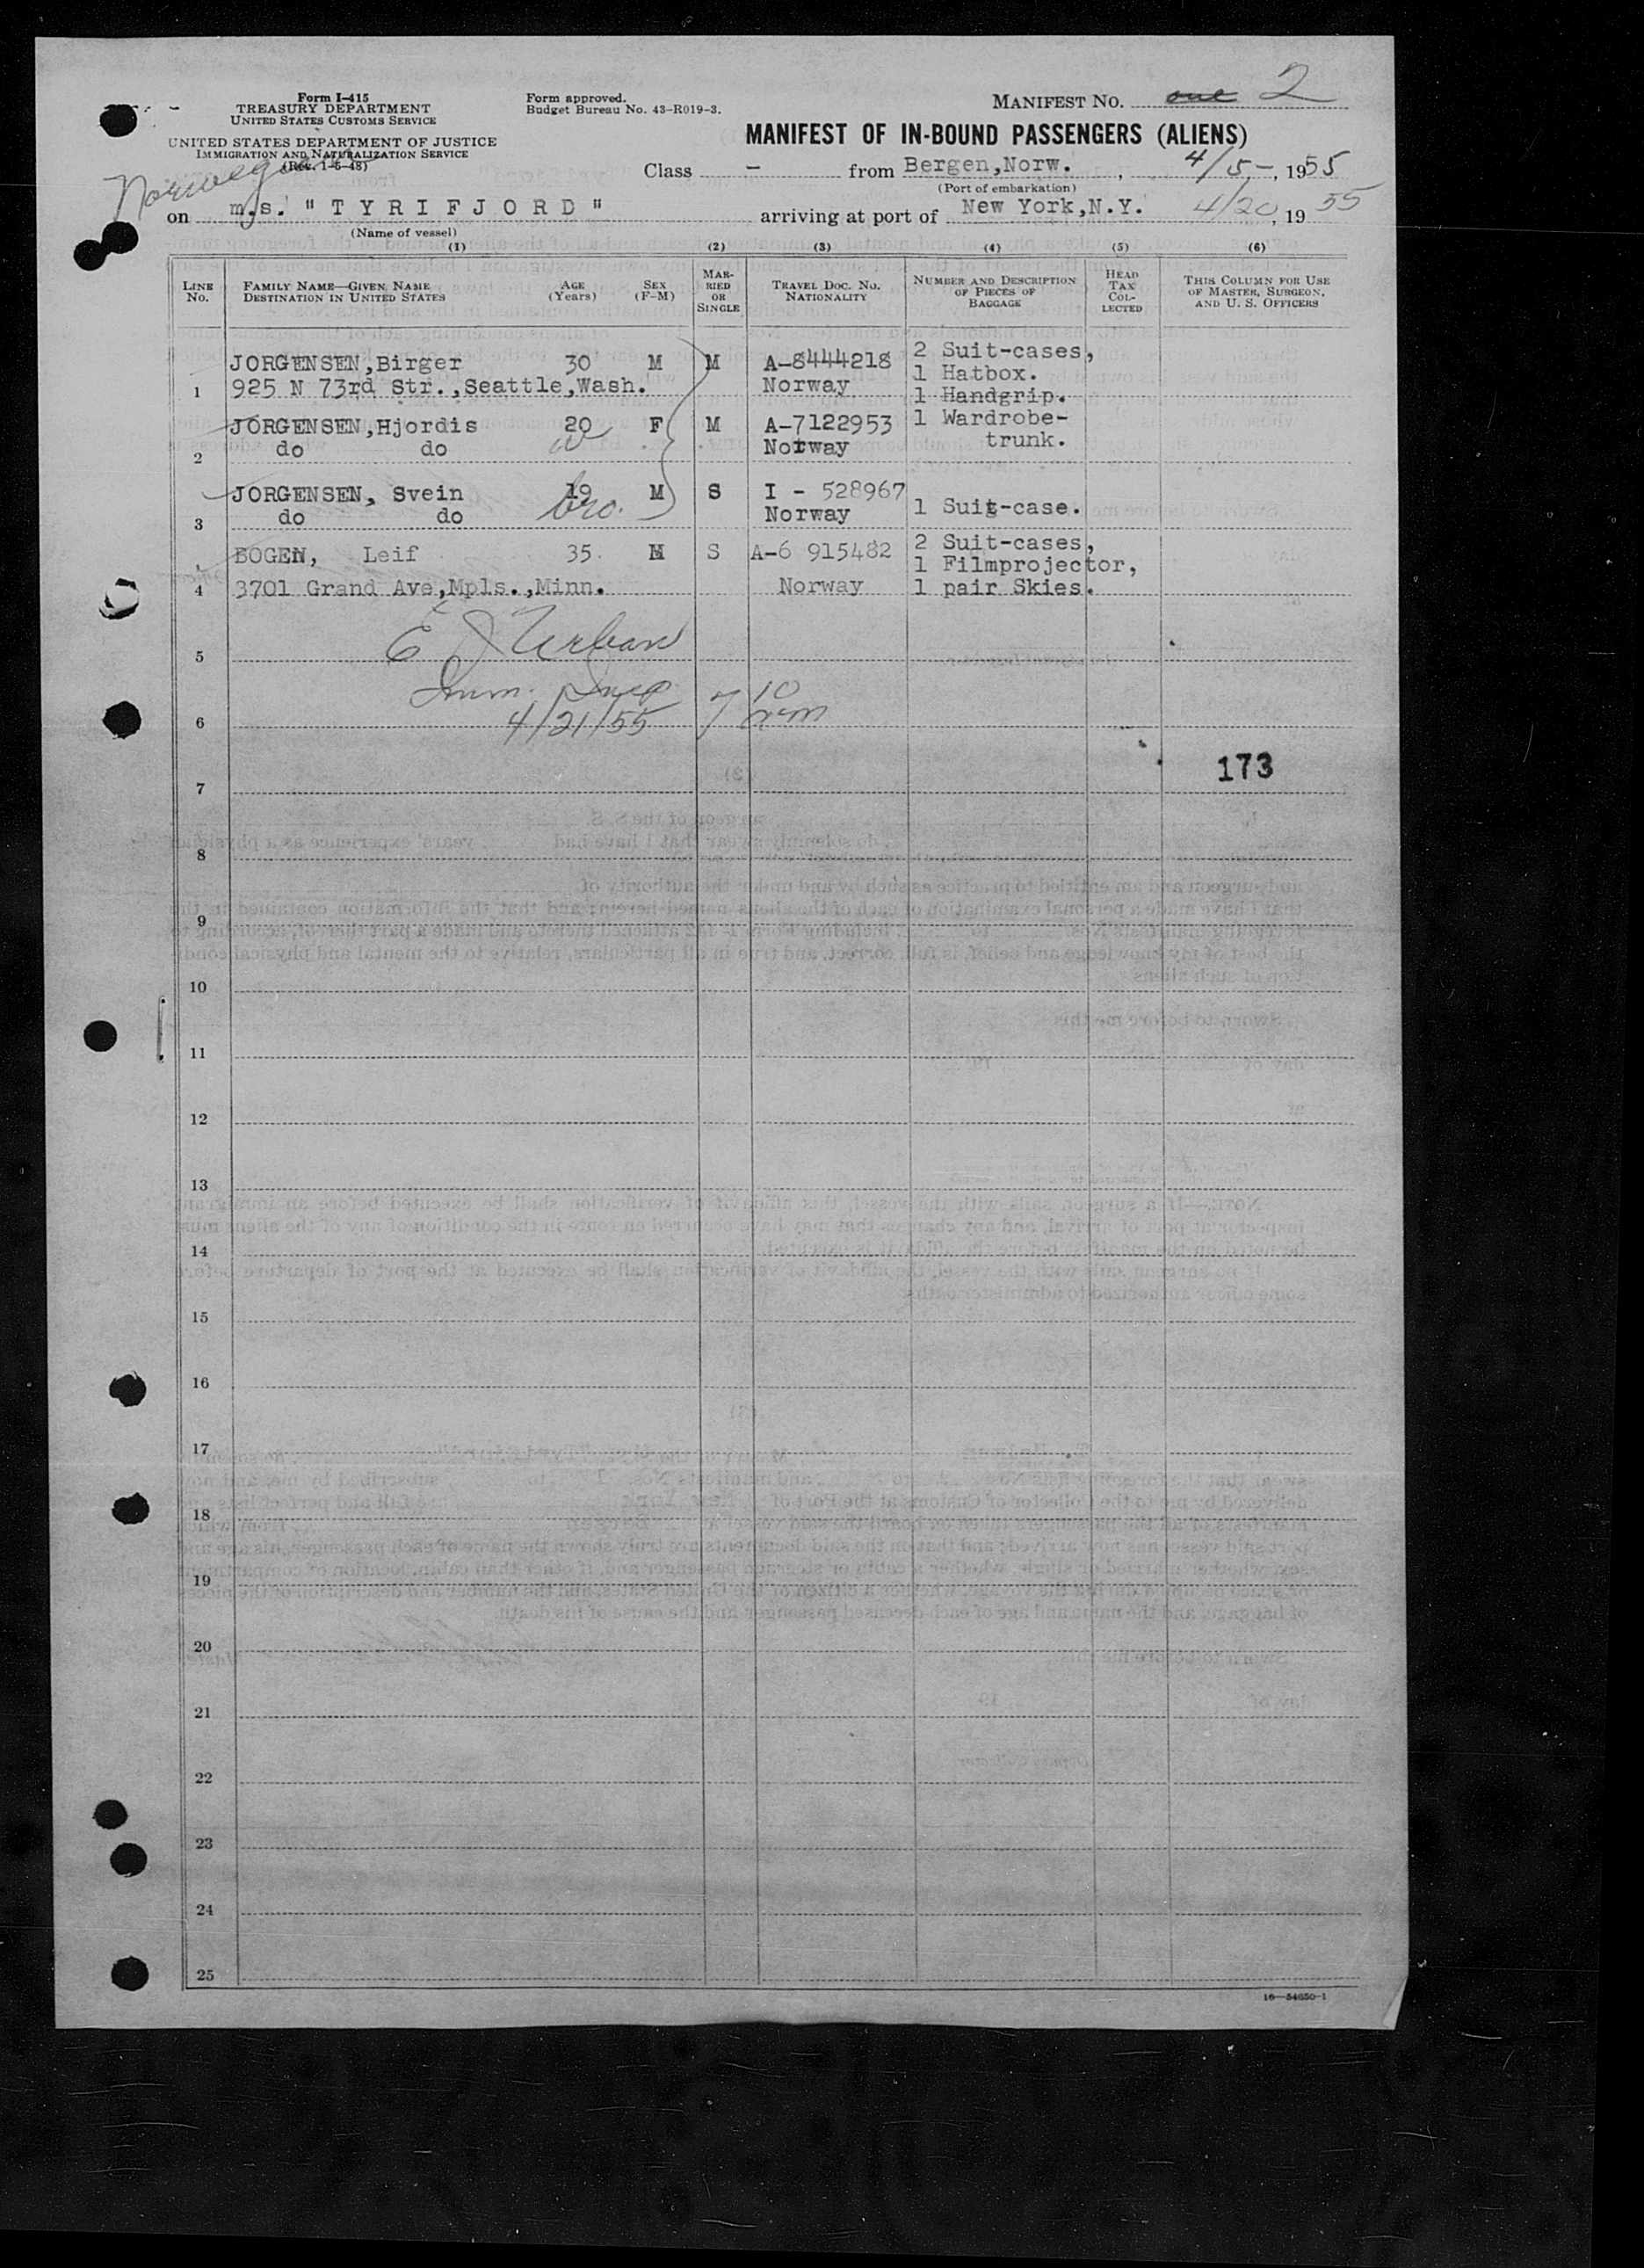 Form I-415
TREASURY DEPARTMENT
UNITED STATES CUSTOMS SERVICE
UNITED STATES DEPARTMENT OF JUSTICE
IMMIGRATION AND NATURALIZATION SERVICE
(Rev. 1-6-48)
Form approved.
Budget Bureau No. 43-R019-3.
MANIFEST NO. one 2
MANIFEST OF IN-BOUND PASSENGERS (ALIENS)
Class – from Bergen,Norw. , 4/5-, 1955
(Port of embarkation)
Norwegian
on m.s. "TYRIFJORD" arriving at port of New York,N.Y. 4/20, 1955
(Name of vessel)
(1) (2) (3) (4) (5) (6)
LINE No.
FAMILY NAME—GIVEN NAME
DESTINATION IN UNITED STATES
AGE (Years)
SEX (F-M)
MARRIED OR SINGLE
TRAVEL DOC. NO. NATIONALITY
NUMBER AND DESCRIPTION OF PIECES OF BAGGAGE
HEAD TAX COLLECTED
THIS COLUMN FOR USE OF MASTER, SURGEON, AND U. S. OFFICERS
JORGENSEN,Birger 30 M M A-8444218 2 Suit-cases,
1 Hatbox.
1 925 N 73rd Str.,Seattle,Wash. Norway 1 Handgrip.
JORGENSEN,Hjordis 20 F M A-7122953 1 Wardrobe-
2 do do w Norway trunk.
JORGENSEN, Svein 19 M S I - 528967
3 do do bro. Norway 1 Suit-case.
BOGEN, Leif 35 M S A-6 915482 2 Suit-cases,
1 Filmprojector,
4 3701 Grand Ave,Mpls.,Minn. Norway 1 pair Skies.
5 E J Urban
Imm. Insp 7 10
6 4/21/55
173
7
8
9
10
11
12
13
14
15
16
17
18
19
20
21
22
23
24
25
16—54650-1